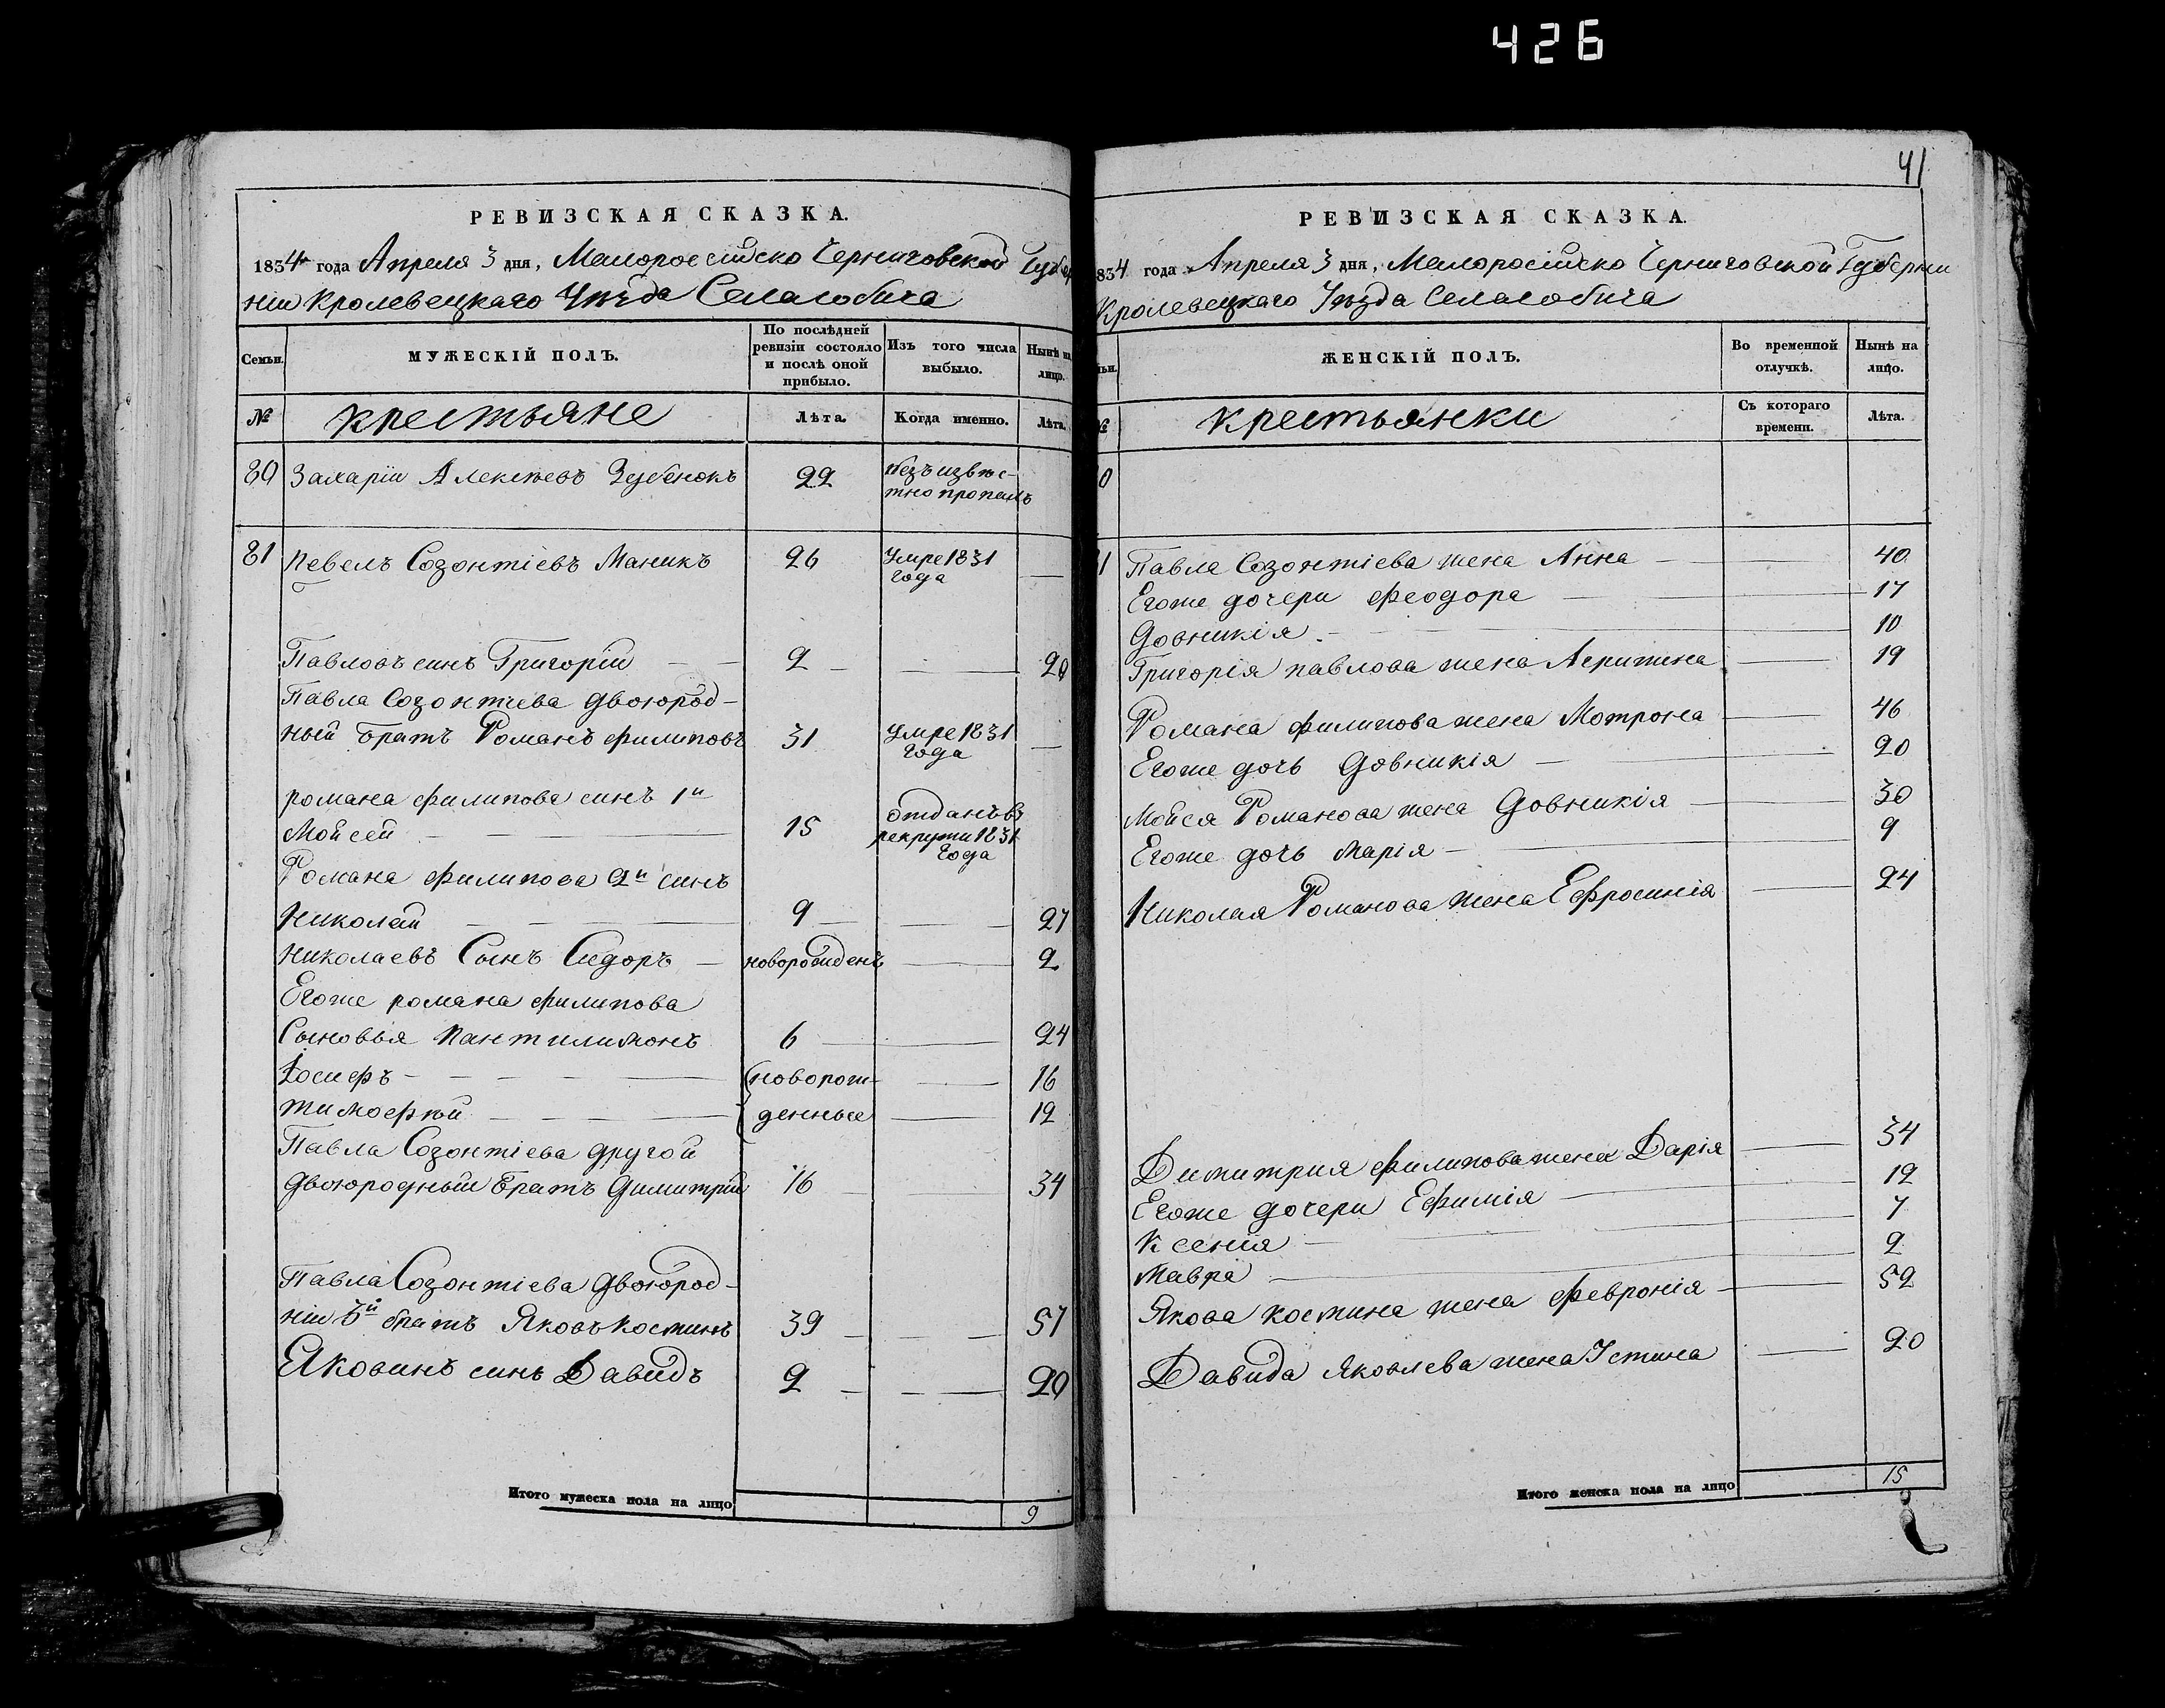 426
РЕВИЗСКАЯ СКАЗКА.
1834 года Апреля 3 дня, Малороссійско Черниговской Губер
ніи Кролевецкаго Уѣзда Села
Семьи.
МУЖЕСКІЙ ПОЛЪ.
По послѣдней
ревизіи состояло
и послѣ оной
прибыло.
Изъ того числа
выбыло.
Нынѣ на
лицо.
№
крестьяне
Лѣта.
Когда именно.
Лѣта.
80 Захарій Алексѣевъ Зубенокъ 22 безъ извѣс-
тно пропалъ
81 Павелъ Созонтіевъ Маникъ 26 Умре 1831
года
Павловъ синъ Григорій 2 20
Павла Созонтіева двоюрод-
ный братъ Романъ филиповъ 31 Умре 1831
года
романа филипова синъ 1й
Мойсей 15 отданъ въ
рекрути 1831
года
Романа филипова 2й синъ
Николай 9 27
Николаевъ Сынъ Сидоръ новорожденъ 2
Егоже романа филипова
Сыновья Пантилимонъ 6 24
Іосифъ новорож- 16
тимофѣй денные 12
Павла Созонтіева другой
двоюродный братъ Димитрій 16 34
Павла Созонтіева двоюрод-
ній 3й братъ Яковъ костинъ 39 57
Яковинъ синъ Давидъ 2 20
Итого мужеска пола на лицо 9
41
РЕВИЗСКАЯ СКАЗКА.
834 года Апреля 3 дня, Малоросійско Черниговской Губерніи
Кролевецкаго Уѣзда Села
ьи.
ЖЕНСКІЙ ПОЛЪ.
Во временной
отлучкѣ.
Нынѣ на
лицо.
№
крестьянки
Съ котораго
времени.
Лѣта.
0
1 Павла Созонтіева жена Анна 40
Егоже дочери феодора 17
Довникія 10
Григорія павлова жена 19
Романа филипова жена Мотрона 46
Егоже дочь Довникія 20
Мойсея Романова жена Довникія 30
Егоже дочь Марія 9
Николая Романова жена Ефросинія 24
Димитрия филипова жена Дарія 34
Егоже дочери Ефимія 12
Ксенія 7
Мавра 2
Якова костина жена февронія 52
Давида Яковлева жена Устина 20
Итого женска пола на лицо 15